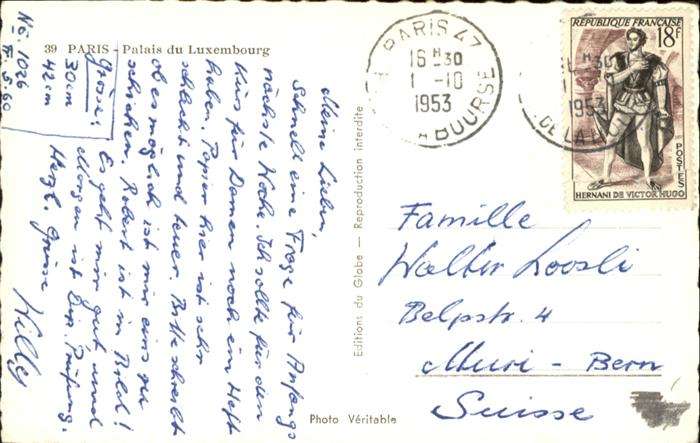 No. 1026
Fr. 5.60
42cm
30cm
Grösse:
39 PARIS - Palais du Luxembourg
Meine Lieben,
Schnell eine Frage für Anfangs
nächste Woche. Ich sollte für den
Kurs für Damen noch ein Heft
haben. Papier hier ist sehr
schlecht und teuer. Bitte schreibt
ob es möglich ist mir eins zu
schicken. Robert ist im Bild!
Es geht mir gut, und
Morgen ist Prüfung.
Herzl. Grüsse
Willy
Editions du Globe — Reproduction interdite
Photo Véritable
PARIS 47
16 H 30
1 -10
1953
BOURSE
REPUBLIQUE FRANÇAISE
18F
30
1953
DE LA
POSTES
HERNANI DE VICTOR HUGO
Famille
Walter Loosli
Belpstr. 4
Muri - Bern
Suisse